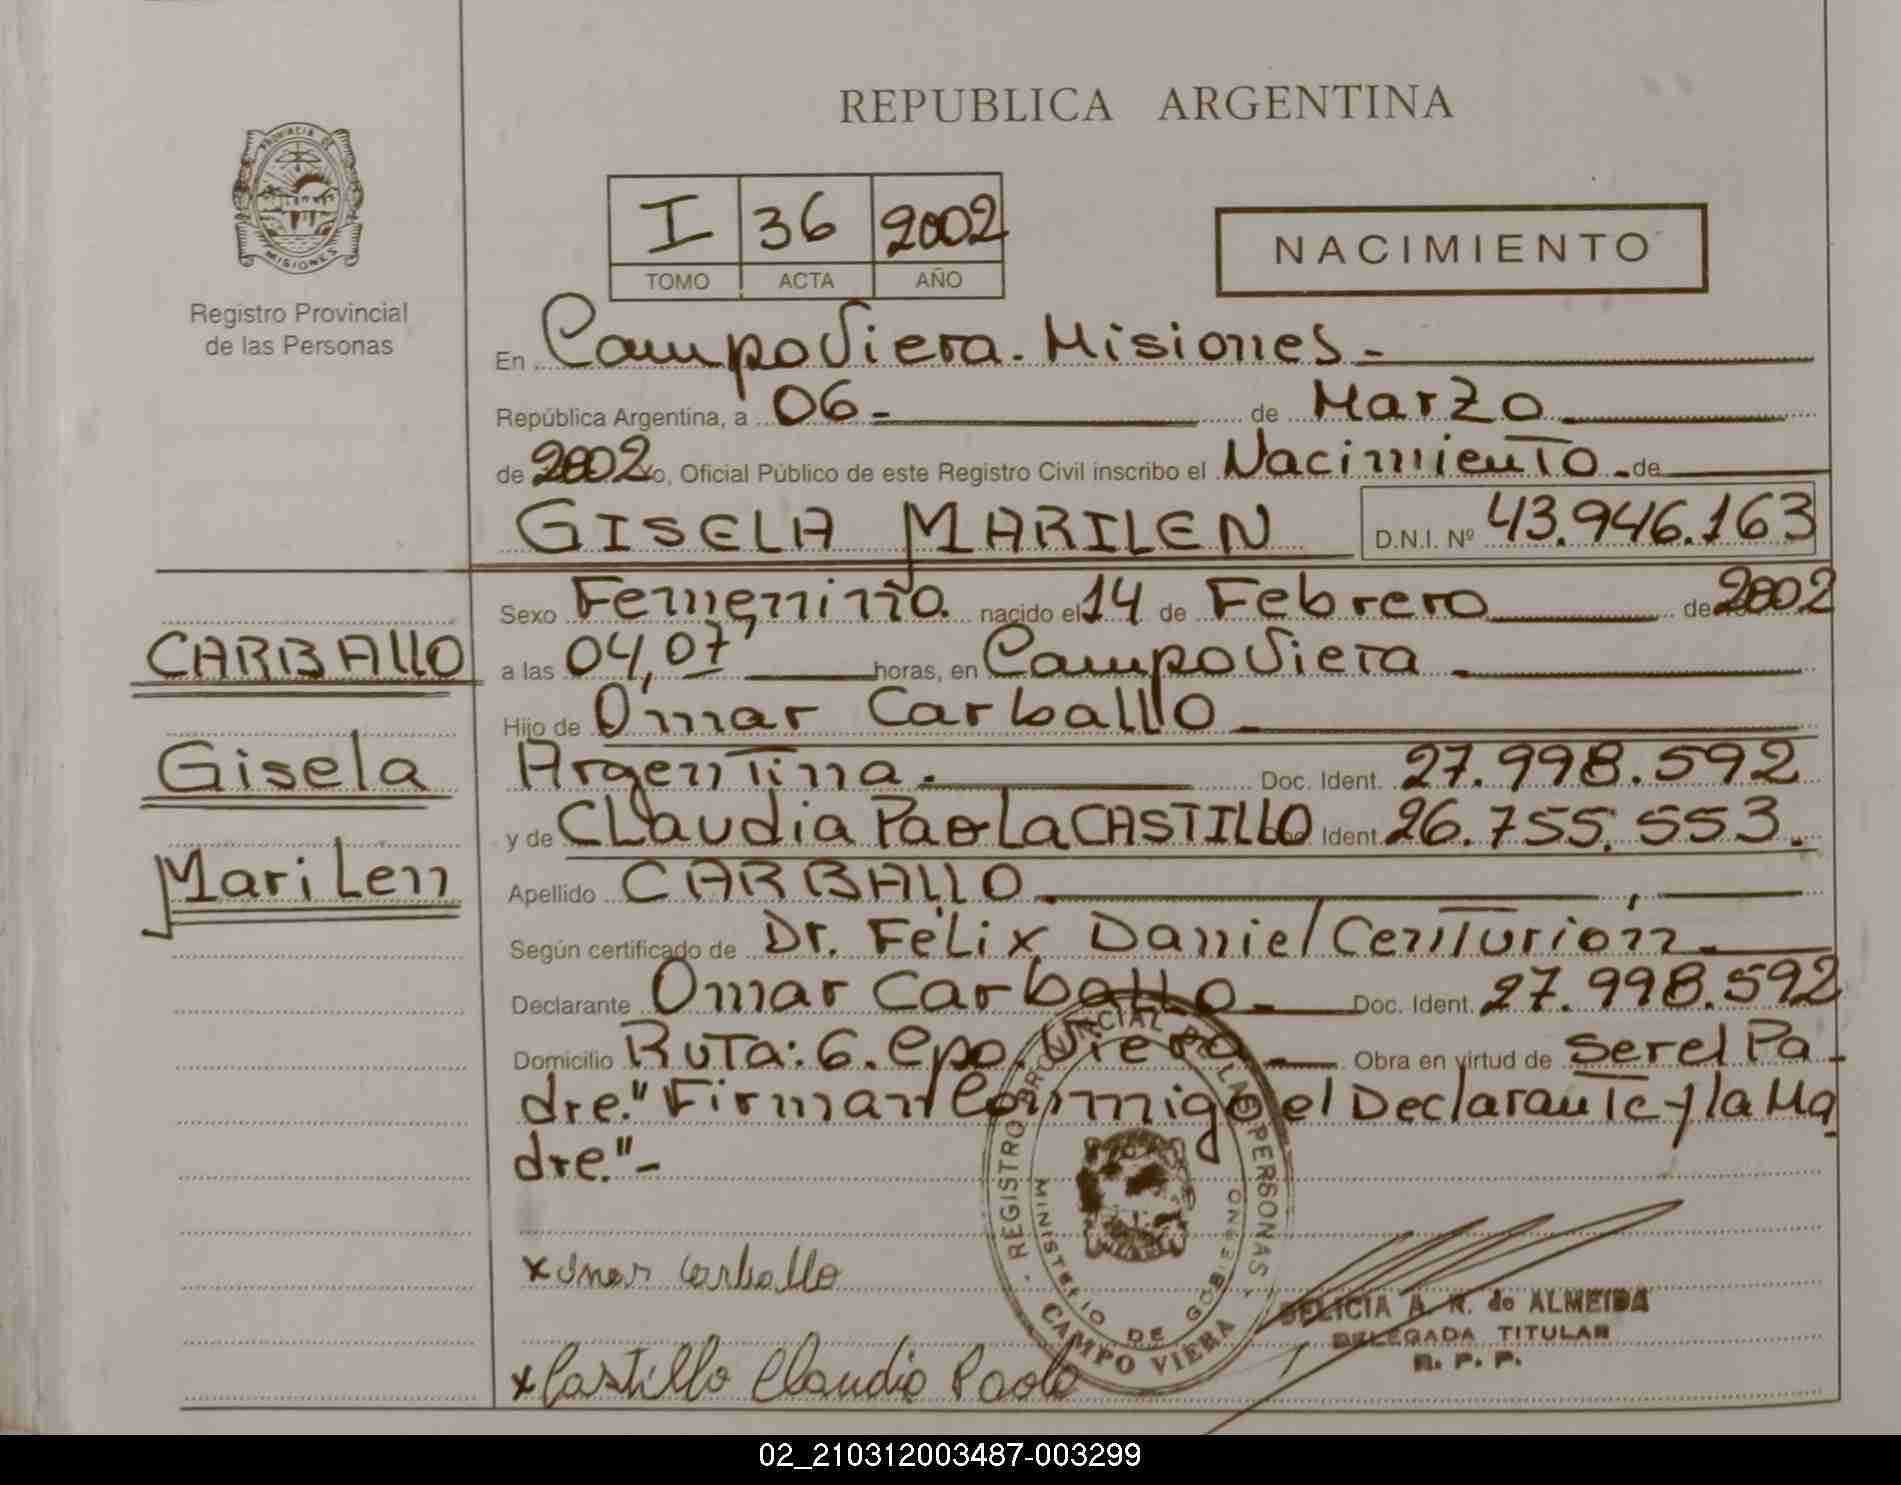 REPUBLICA ARGENTINA
PROVINCIA DE MISIONES
Registro Provincial
de las Personas
I 36 2002
TOMO ACTA AÑO
NACIMIENTO
En Campo Viera. Misiones.-
República Argentina, a 06.- de Marzo
de 2002 Yo, Oficial Público de este Registro Civil inscribo el Nacimiento.- de
GISELA MARILEN D.N.I. Nº 43.946.163
Sexo Femenino. nacido el 14 de Febrero de 2002
CARBALLO
a las 04,07' horas, en Campo Viera.
Hijo de Omar Carballo.
Gisela
Argentina. Doc. Ident. 27.998.592
y de CLaudia PaoLa CASTILLO Doc. Ident. 26.755.553.
Marilen
Apellido CARBALLO
Según certificado de Dr. Félix Daniel Centurion.
Declarante Omar Carballo.- Doc. Ident. 27.998.592
Domicilio RuTa: 6. Cpo. Viera.- Obra en virtud de Ser el Pa-
dre." Firman Conmigo el Declarante y la Ma
dre."-
x Omar Carballo
x Castillo Claudia Paola
REGISTRO PROVINCIAL DE LAS PERSONAS
MINISTERIO DE GOBIERNO
CAMPO VIERA
DELICIA A. R. de ALMEIDA
DELEGADA TITULAR
R. P. P.
02_210312003487-003299